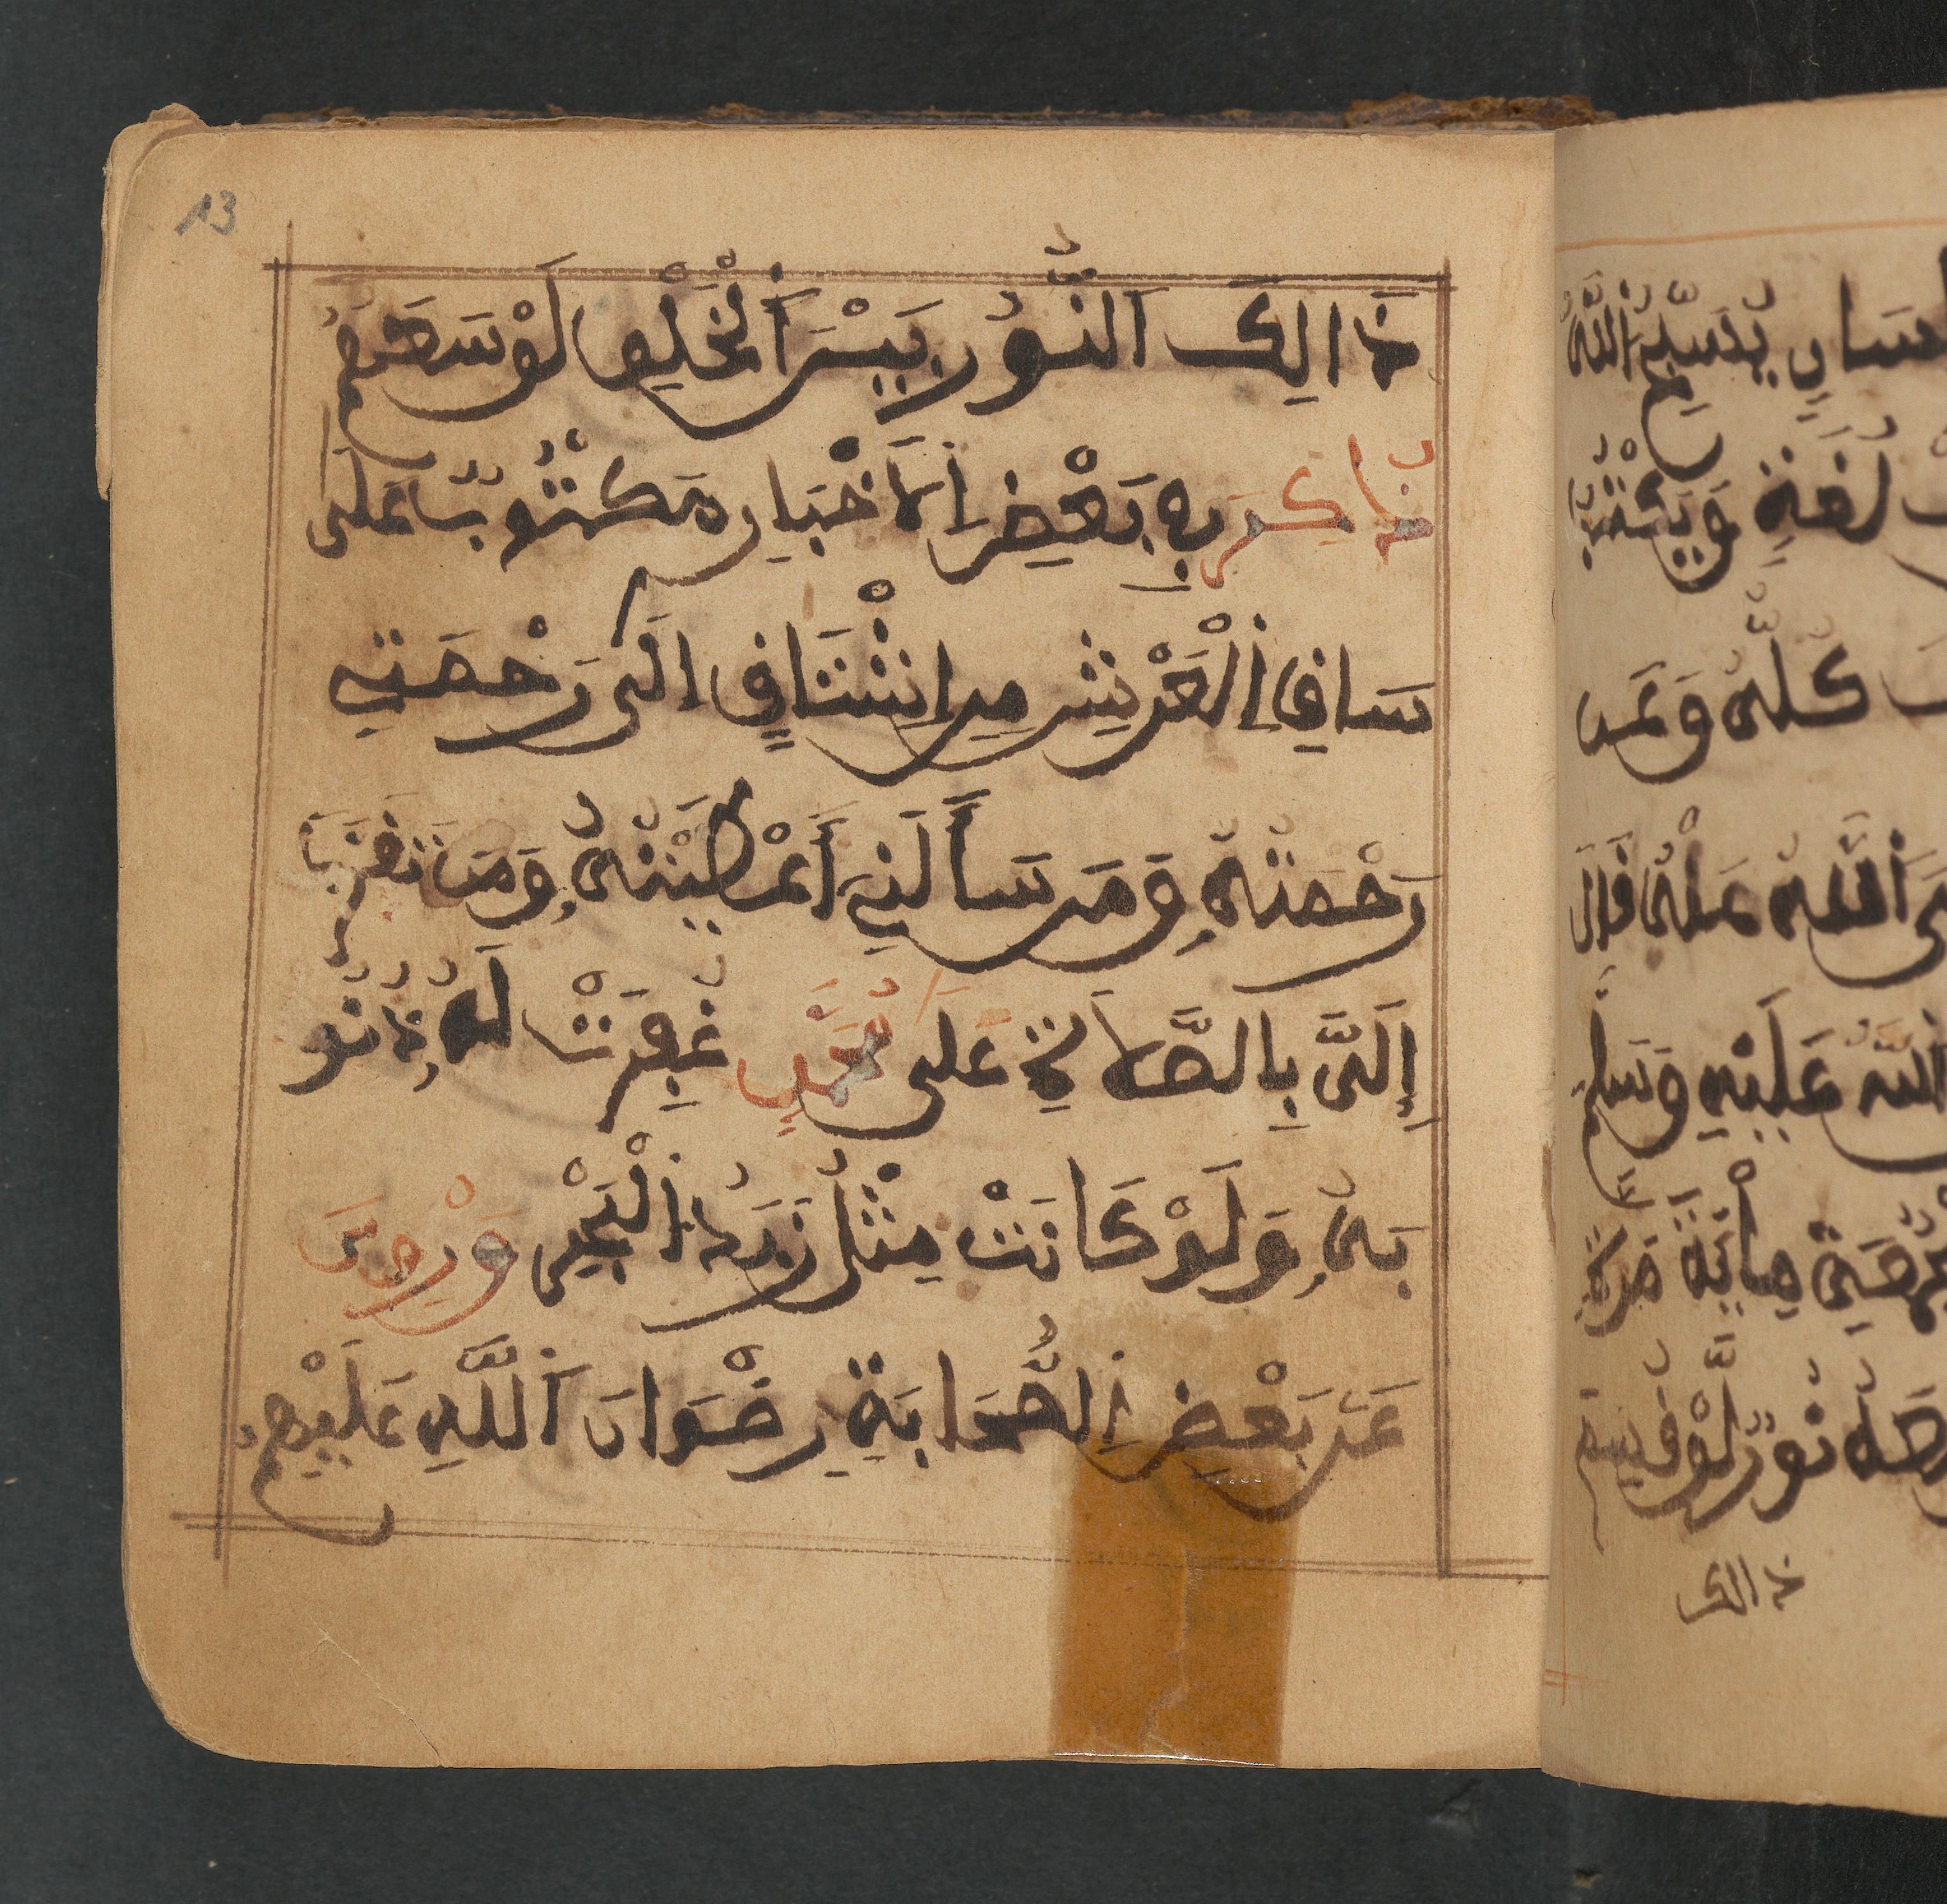 13
ذَالِكَ اَلنُّورُ بَيْنَ اَلْخَلْقِ لَوَسَعَهُمْ
ذُكِرَ بِهِ بَعْضِ اِلَاخْبَارِ مَكْتُوبٌ عَلَى
سَاقِ اِلْعَرْشِ مَنِ اِشْتَاقِ اِلَى رَحْمَتِي
رَحِمْتُهُ وَمَن سَأَلَنِي أَعْطَيْتُهُ وَمَن تَقَرَّبَ
إِلَيَّ بِالصَّلَاةِ عَلَى مُحَمَّدٍ غُفِرَتْ لَهُ ذُنُو
بَهُ وَلَوْ كَانَتْ مِثْلُ زَبَدُ اَلْبَحْرِ وَرُوِيَ
عَن بَعْضِ اِلصُّحَابَةِ رِضْوَانَ اَللَّهِ عَلَيْهِمُ
يُدْسِيهِ اللَّهُ
لُغَةٍ وَيَكْتُبُ
كُلُّهُ وَعَن
اَللَّهُ عَنْهُ قَالَ
اللَّهُ عَلَيْهِ وَسَلَّمَ
مِايَةَ مَرَّةٍ
نُورٌ لَوْ قُسِمَ
ذالك